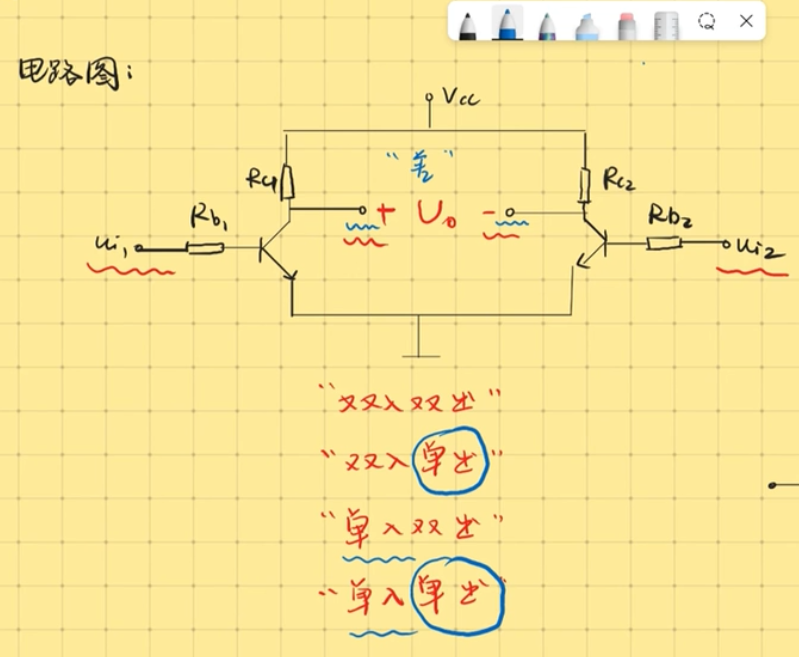 电路图：
Vcc
Rc1 “差” Rc2
Rb1 + Uo - Rb2
ui1 ui2
“双入双出”
“双入单出”
“单入双出”
“单入单出”